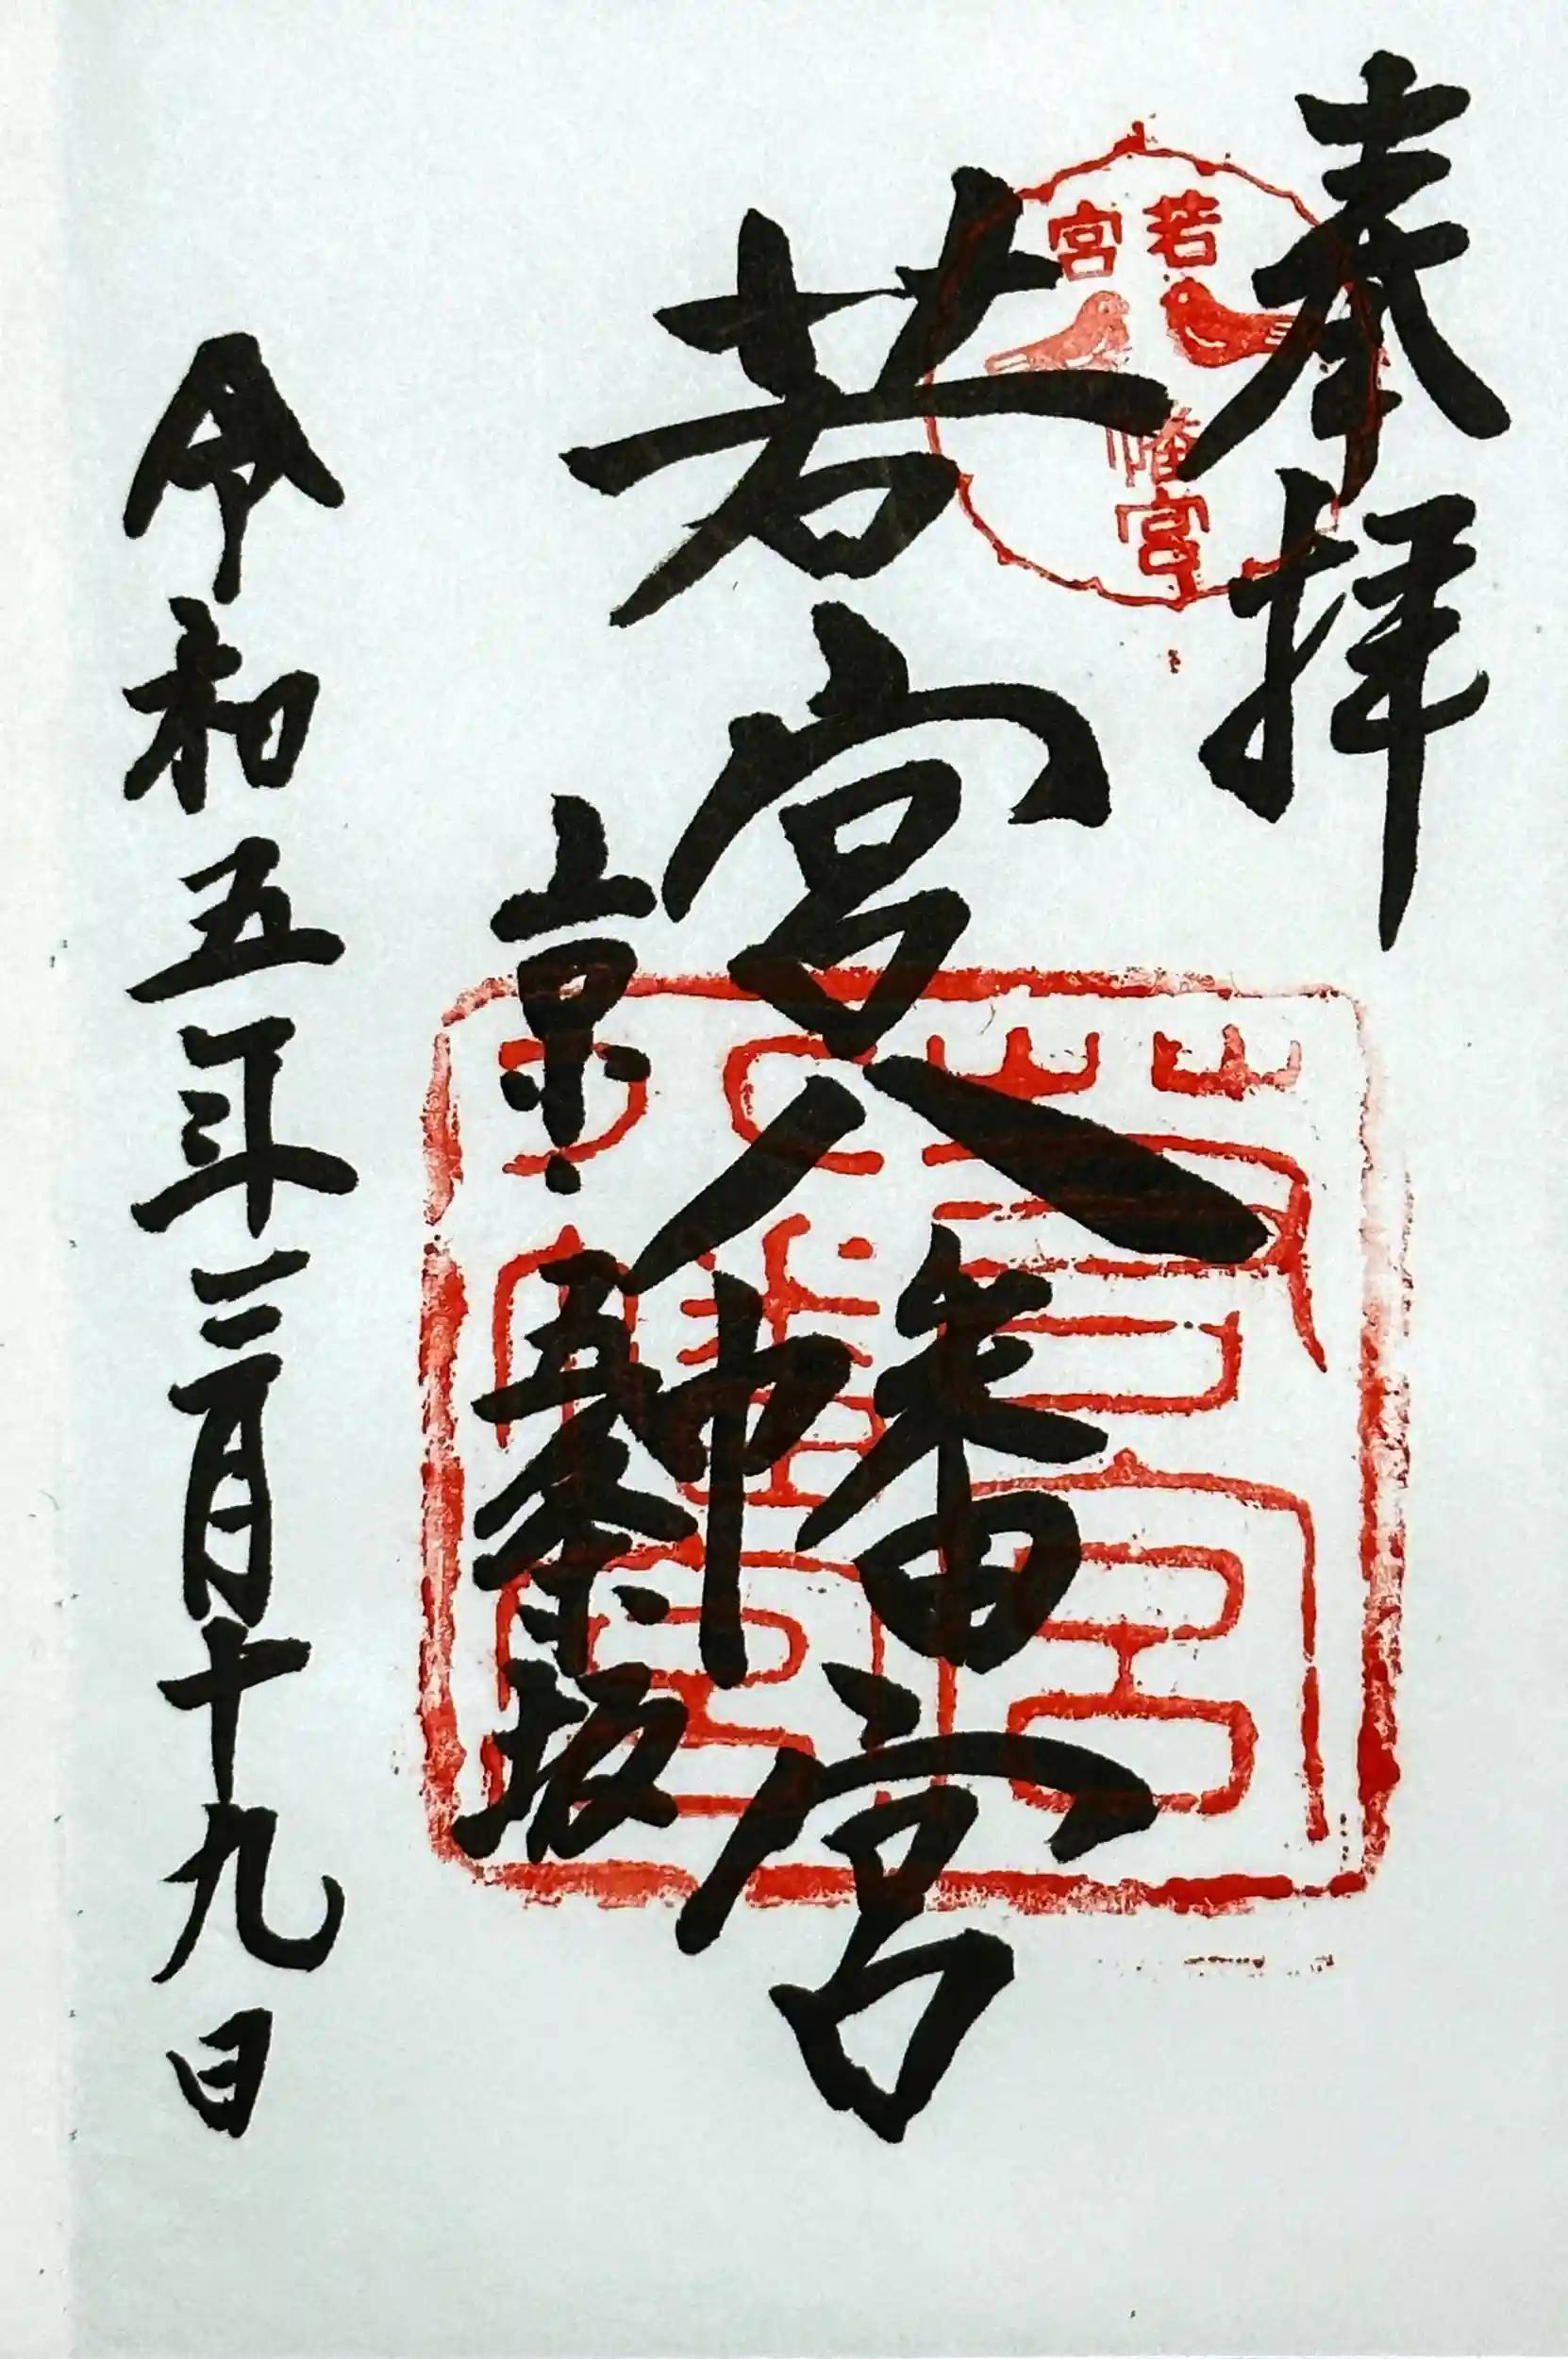 奉拝
若宮
幡宮
若宮八幡宮
若宮八幡宮
京五条坂
令和五年三月十九日